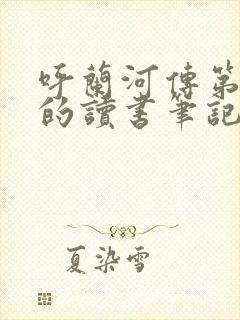 呼蘭河傳第
的讀書筆記
夏染雪